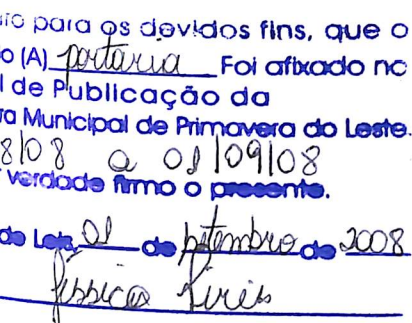 para os devidos fins, que o
o (A) portaria Foi afixado no
l de Publicação da
ra Municipal de Primavera do Leste.
8/08 a 01/09/08
verdade firmo o presente.
do Leste, 01 de setembro de 2008
Jéssica Pires